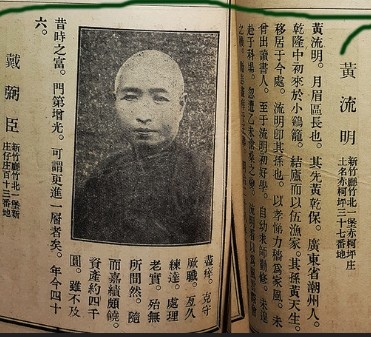 黃流明
新竹廳竹北一堡赤柯坪庄
土名赤柯坪三十七番地
黃流明。月眉區長也。其先黃乾保。廣東省潮州人。
乾隆中初來於小鷄籠。結廬而以伍漁家。其孫黃天生。
移居于今處。流明卽其孫也。以孝悌力穡爲家風。未
曾出讀書人。至于流明初好學。自幼
赴于科場。
盡瘁。克守
厥職。亙久
練達。處理
老實。殆無
所間然。隨
而嘉績頗饒。
資產約四千
圓。雖不及
昔時之富。門第增光。可謂更進一層者矣。年今四十
六。
戴蒴臣
新竹廳竹北一堡新
庄仔庄百十三番地